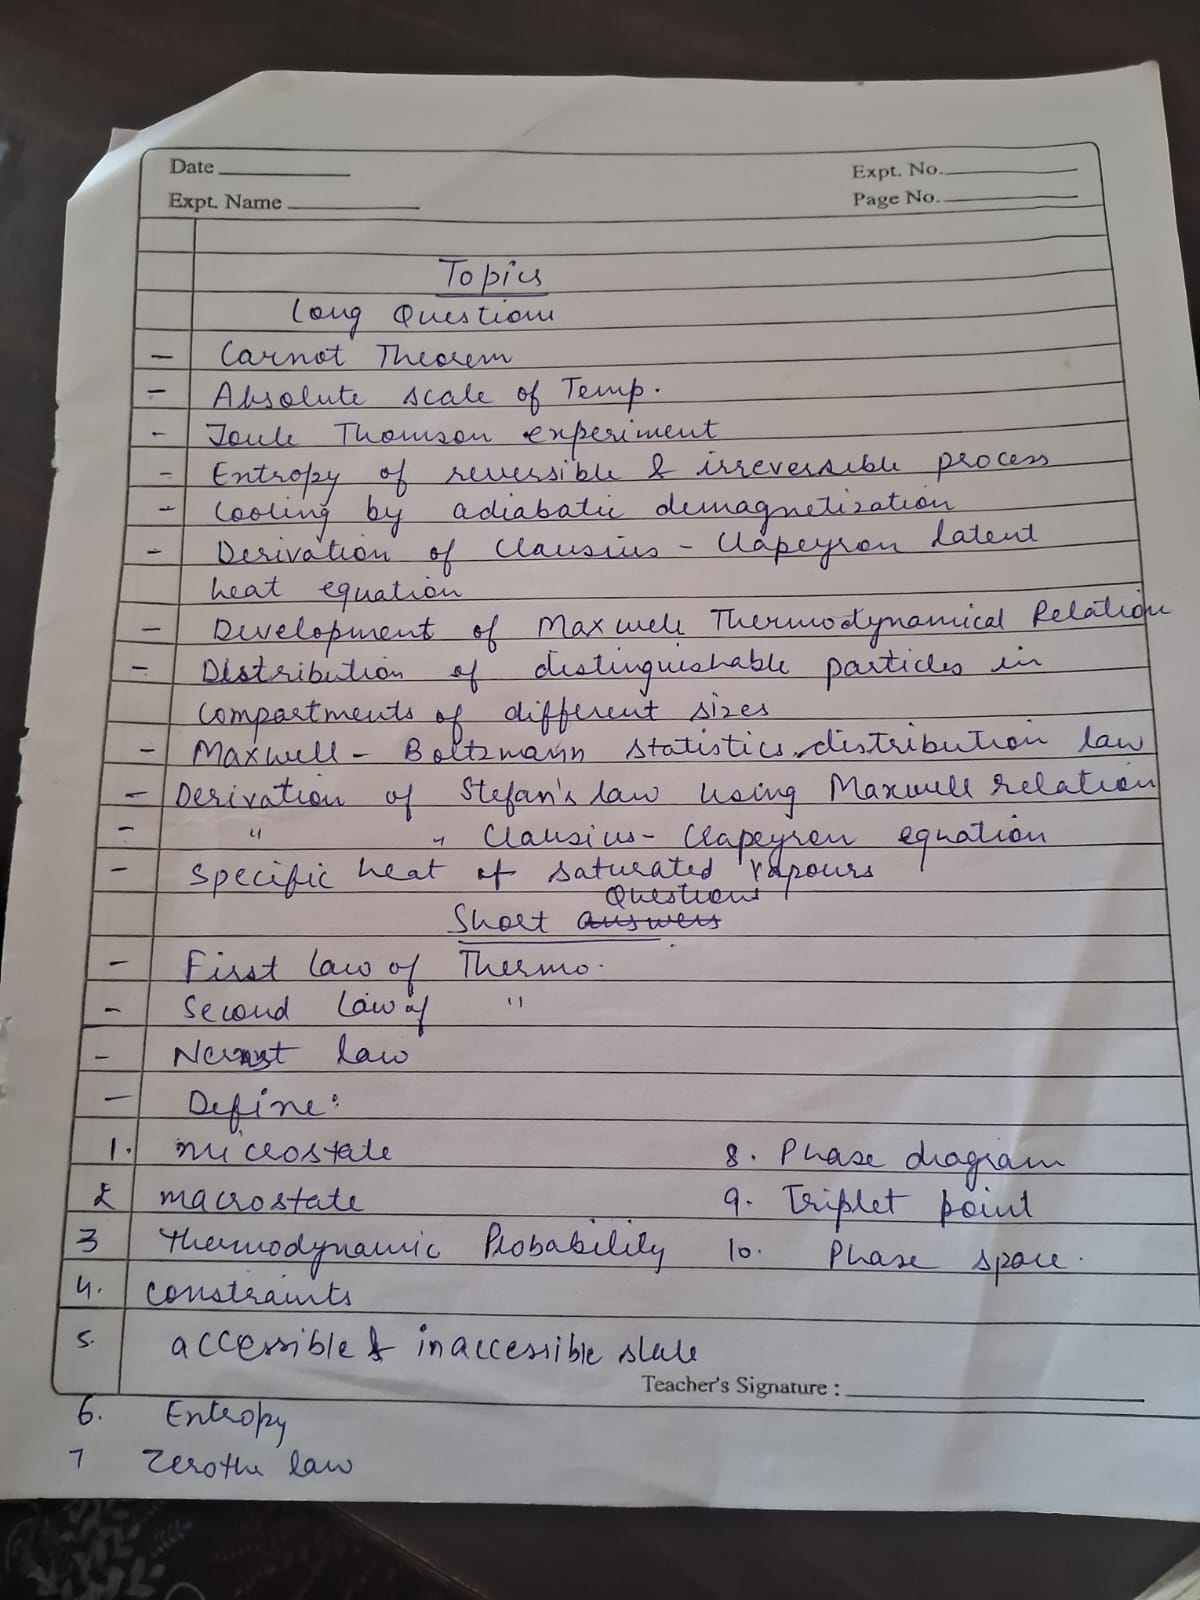 Date
Expt. No.
Expt. Name
Page No.
Topics
Long Questions
- Carnot Theorem
- Absolute scale of Temp.
- Joule Thomson experiment
- Entropy of reversible & irreversible process
- Cooling by adiabatic demagnetization
- Derivation of Clausius - Clapeyron latent
heat equation
- Development of Maxwell Thermodynamical Relation
- Distribution of distinguishable particles in
compartments of different sizes
- Maxwell - Boltzmann statistics distribution law
- Derivation of Stefan's law using Maxwell relation
- " " Clausius - Clapeyron equation
- Specific heat of saturated vapours
Questions
Short answers
- First law of Thermo.
- Second law of "
- Nernst law
- Define:
1. microstate
8. Phase diagram
2 macrostate
9. Triplet point
3 thermodynamic Probability
10. Phase space.
4. constraints
5. accessible & inaccessible state
Teacher's Signature :
6. Entropy
7 Zeroth law